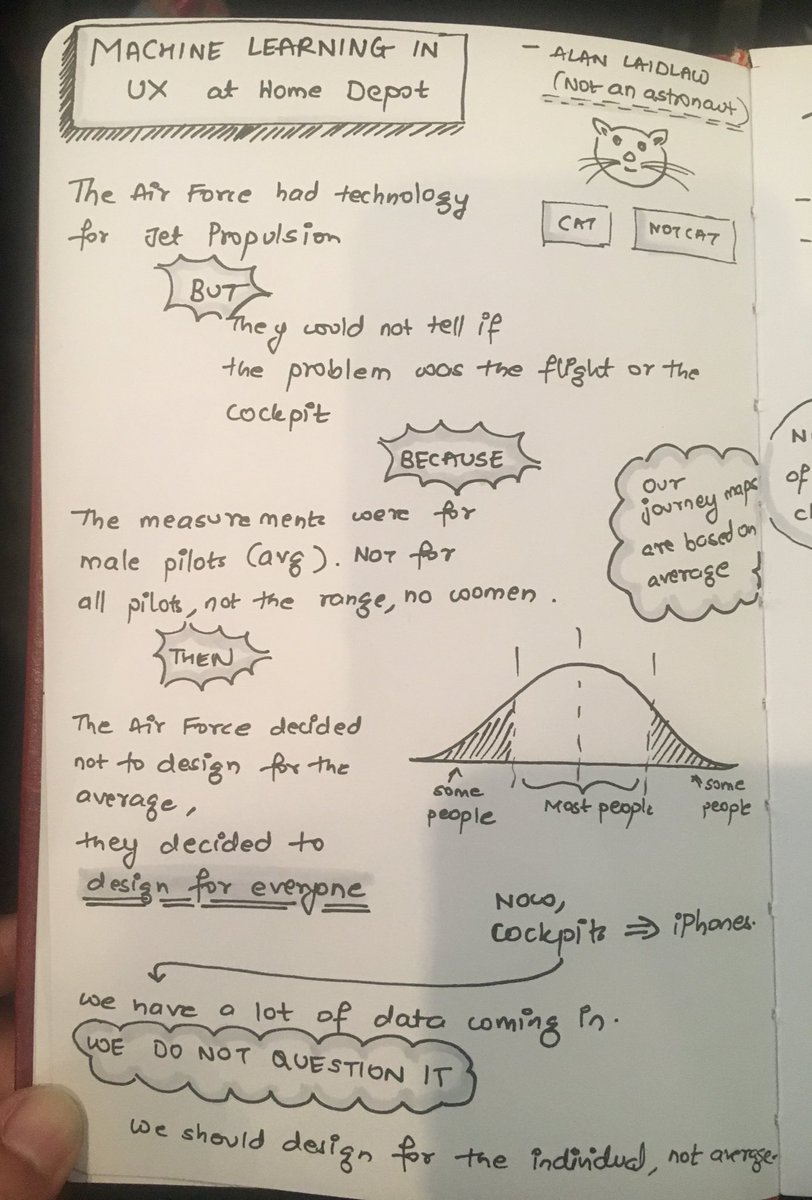 MACHINE LEARNING IN
UX at Home Depot
- ALAN LAIDLAW
(Not an astronaut)
CAT
NOT CAT
The Air Force had technology
for Jet Propulsion
BUT
They could not tell if
the problem was the flight or the
cockpit
BECAUSE
The measurements were for
male pilots (avg). NOT for
all pilots, not the range, no women.
our
journey maps
are based on
average
THEN
The Air Force decided
not to design for the
average,
they decided to
design for everyone
some
people
Most people
some
people
Now,
cockpits ⇒ iPhones.
we have a lot of data coming in.
WE DO NOT QUESTION IT
we should design for the individual, not average.
N
of
cl